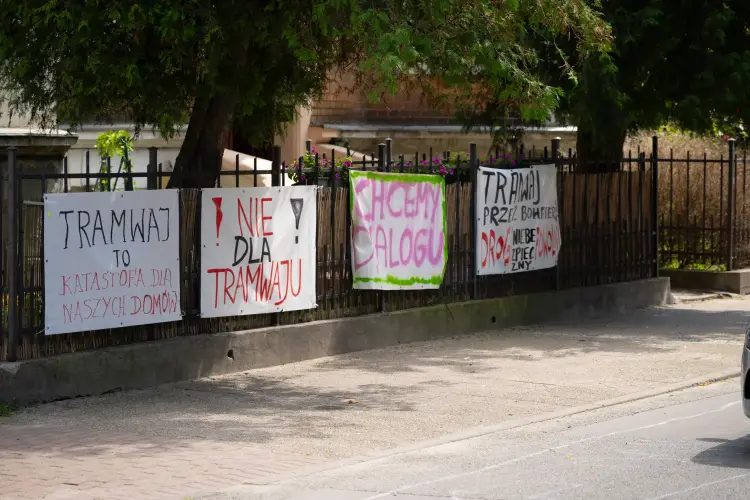 TRAMWAJ
TO
KATASTOFA DLA
NASZYCH DOMÓW
! NIE !
DLA
TRAMWAJU
CHCEMY
DIALOGU
TRAMWAJ
PRZEZ
NIEBEZ
PIECZ
NY